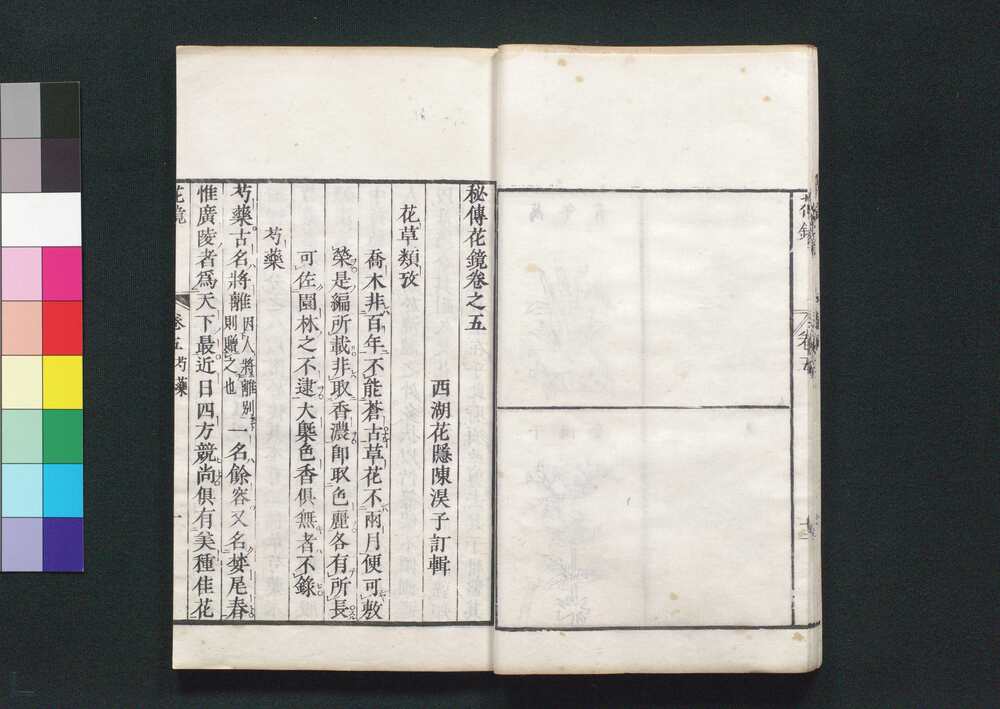 秘傳花鏡卷之五
西湖花隱陳淏子訂輯
花草類攷
喬木非百年不能蒼古草花不兩月便可敷
榮是編所載非取香濃即取色麗各有所長
可佐園林之不逮大槩色香俱無者不錄
芍藥
芍藥古名將離因人將離別則贈之也一名餘容又名婪尾春
惟廣陵者爲天下最近日四方競尚俱有美種佳花
花鏡 卷五 芍藥 一